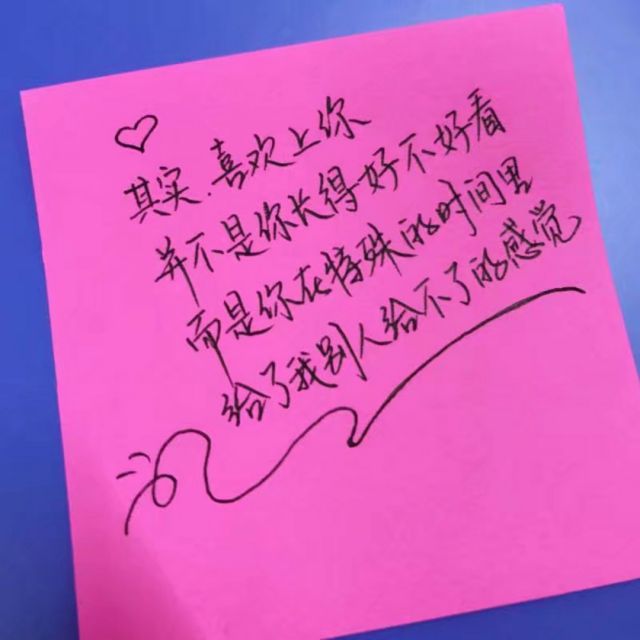 其实.喜欢上你
并不是你长得好不好看
而是你在特殊的时间里
给了我别人给不了的感觉